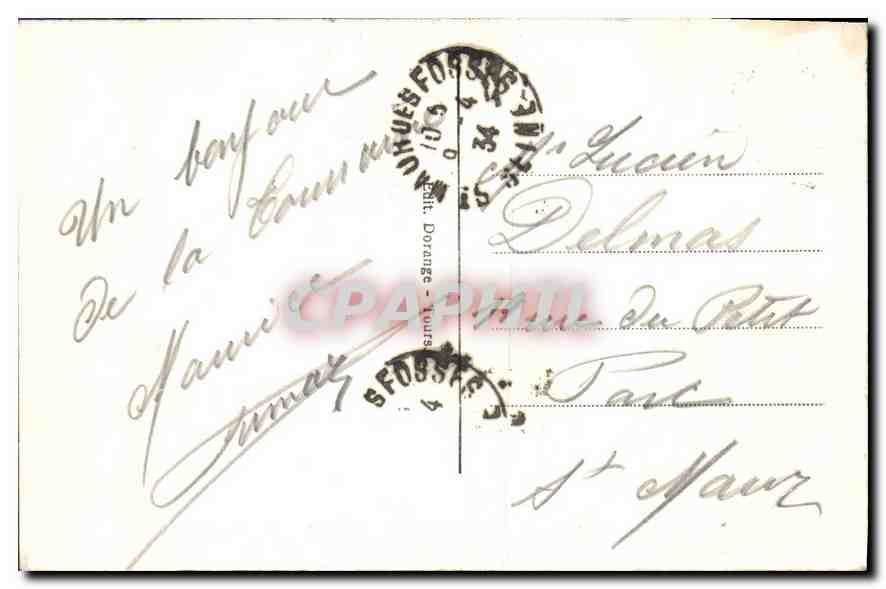 Un bonjour
de la Touraine
Maurice
Edit. Dorange - Tours.
CPAPHIL
ST MAUR DES FOSSÉS - SEINE
10
4
34
Lucien
Delmas
rue du Petit
Parc
St Maur
S FOSSÉS
4